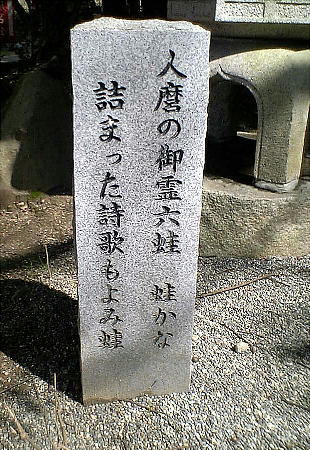 人麿の御霊六蛙　蛙かな
詰まった詩歌もよみ蛙